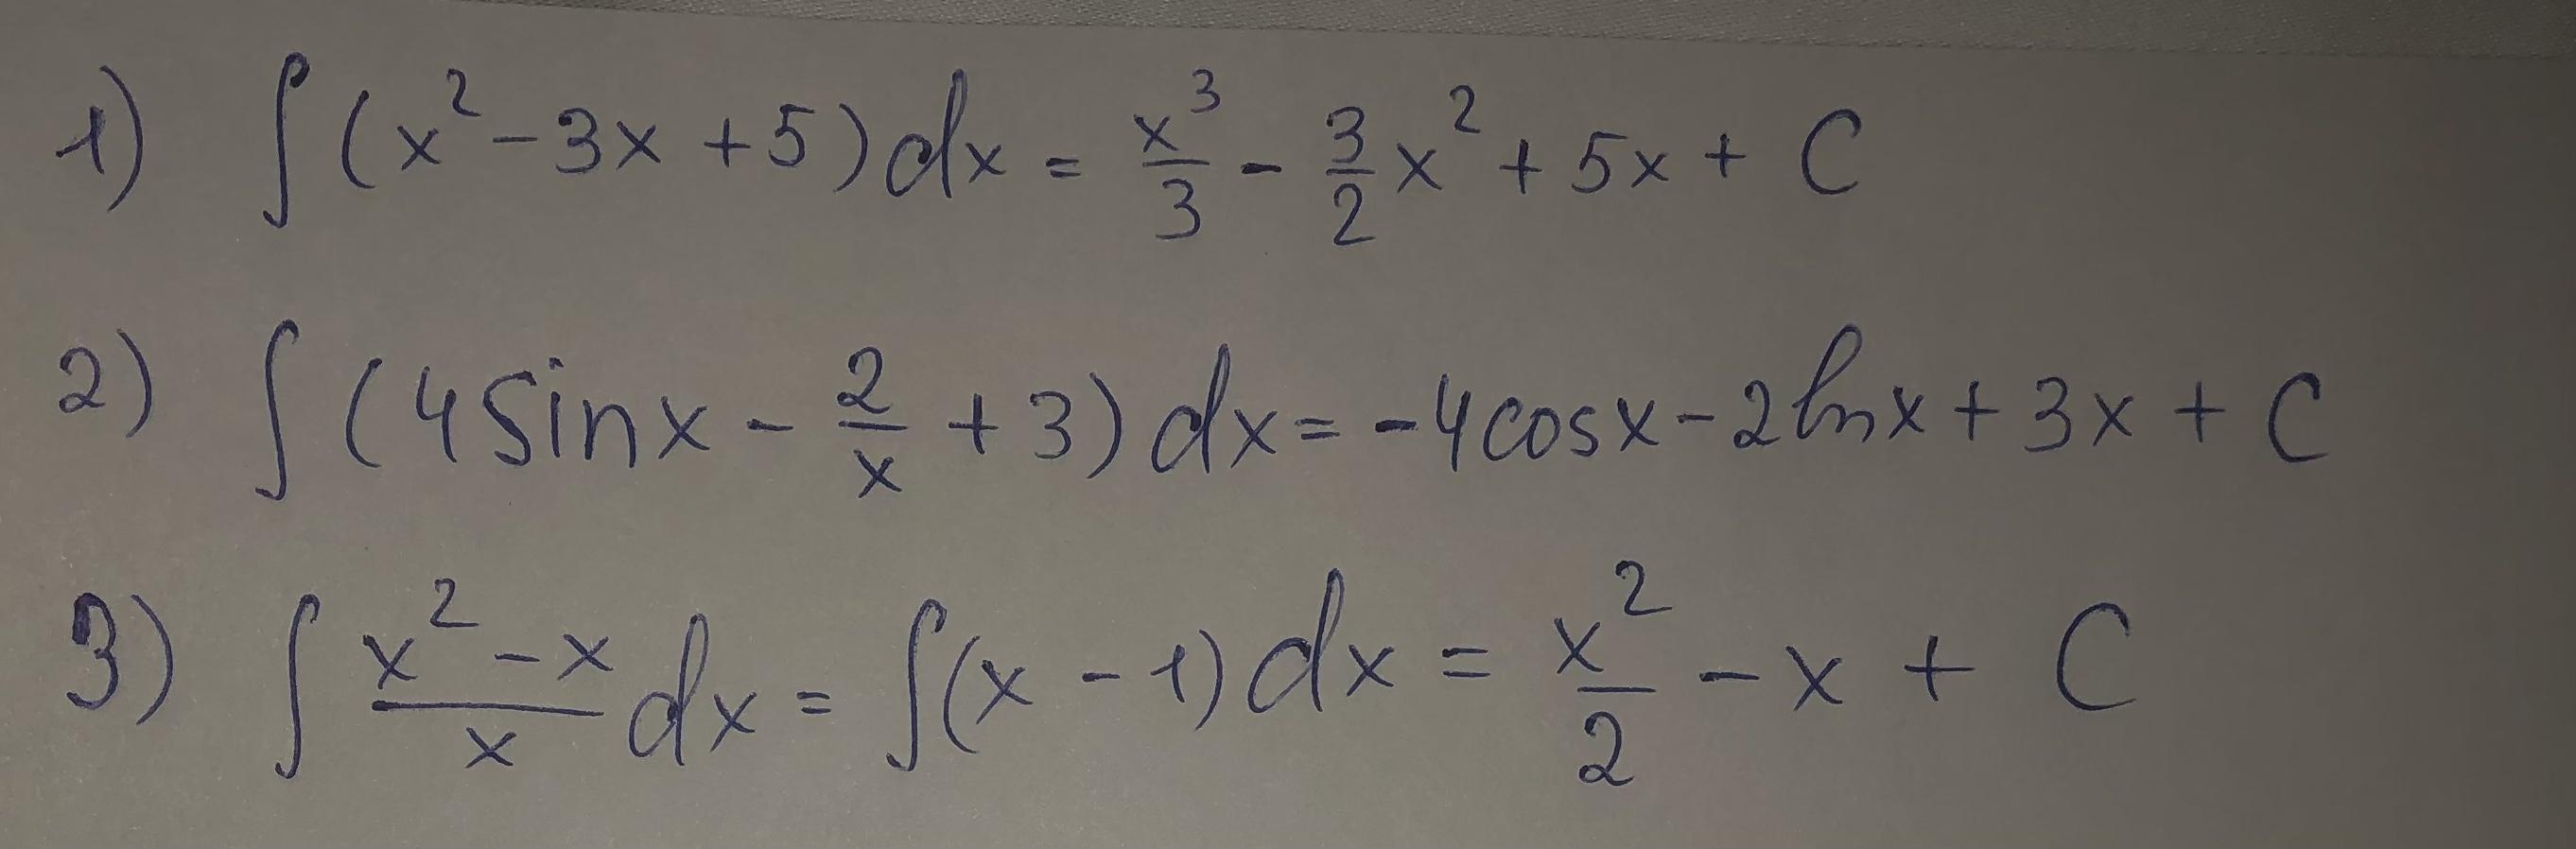 1) ∫(x²-3x+5)dx = x³/3 - 3/2 x² + 5x + C
2) ∫(4sinx - 2/x + 3)dx = -4cosx - 2lnx + 3x + C
3) ∫ (x²-x)/x dx = ∫(x-1)dx = x²/2 - x + C